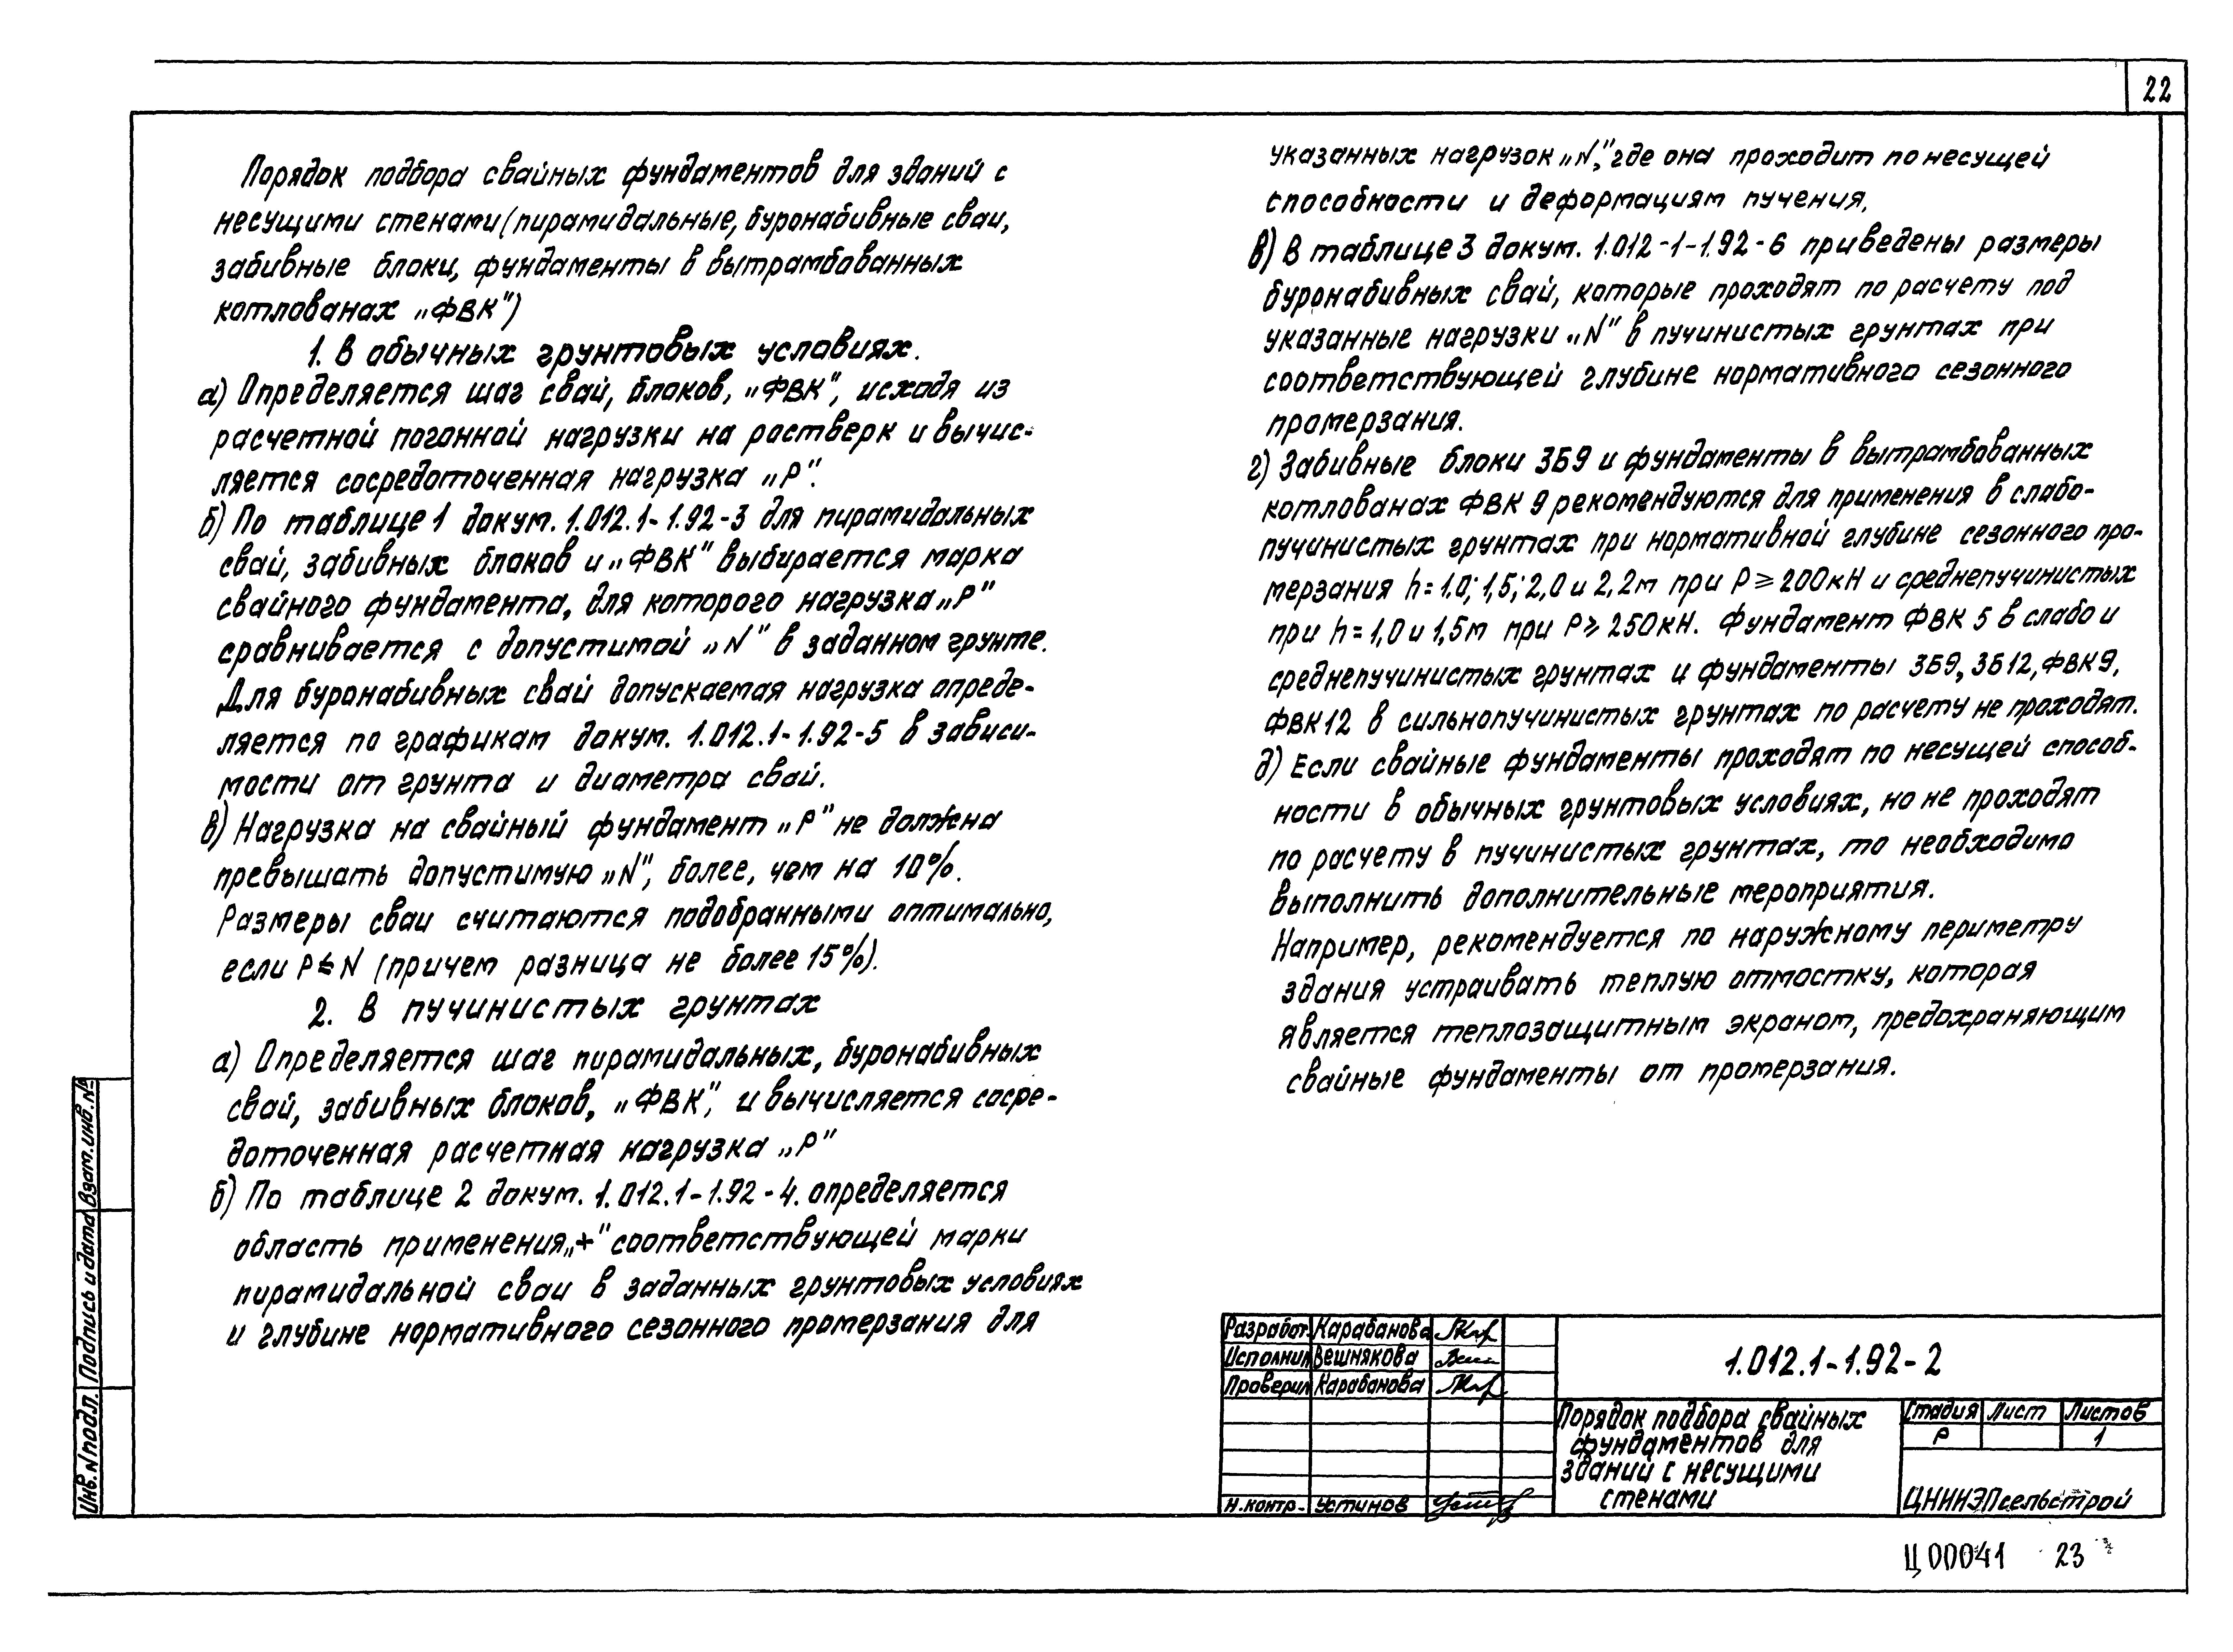 22
Порядок подбора свайных фундаментов для зданий с
несущими стенами (пирамидальные, буронабивные сваи,
забивные блоки, фундаменты в вытрамбованных
котлованах „ФВК")
1. В обычных грунтовых условиях.
а) Определяется шаг свай, блоков, „ФВК", исходя из
расчетной погонной нагрузки на ростверк и вычис-
ляется сосредоточенная нагрузка „Р".
б) По таблице 1 докум. 1.012.1-1.92-3 для пирамидальных
свай, забивных блоков и „ФВК" выбирается марка
свайного фундамента, для которого нагрузка „Р"
сравнивается с допустимой „N" в заданном грунте.
Для буронабивных свай допускаемая нагрузка опреде-
ляется по графикам докум. 1.012.1-1.92-5 в зависи-
мости от грунта и диаметра свай.
в) Нагрузка на свайный фундамент „Р" не должна
превышать допустимую „N", более, чем на 10%.
Размеры сваи считаются подобранными оптимально,
если Р≤N (причем разница не более 15%).
2. В пучинистых грунтах
а) Определяется шаг пирамидальных, буронабивных
свай, забивных блоков, „ФВК", и вычисляется сосре-
доточенная расчетная нагрузка „Р"
б) По таблице 2 докум. 1.012.1-1.92-4. определяется
область применения „+" соответствующей марки
пирамидальной сваи в заданных грунтовых условиях
и глубине нормативного сезонного промерзания для
указанных нагрузок „N", где она проходит по несущей
способности и деформациям пучения.
в) В таблице 3 докум. 1.012-1-1.92-6 приведены размеры
буронабивных свай, которые проходят по расчету под
указанные нагрузки „N" в пучинистых грунтах при
соответствующей глубине нормативного сезонного
промерзания.
г) Забивные блоки ЗБ9 и фундаменты в вытрамбованных
котлованах ФВК 9 рекомендуются для применения в слабо-
пучинистых грунтах при нормативной глубине сезонного про-
мерзания h=1.0; 1,5; 2,0 и 2,2м при Р ≥ 200кН и среднепучинистых
при h=1,0 и 1,5м при Р≥ 250кН. Фундамент ФВК 5 в слабо и
среднепучинистых грунтах и фундаменты ЗБ9, ЗБ12, ФВК9,
ФВК12 в сильнопучинистых грунтах по расчету не проходят.
д) Если свайные фундаменты проходят по несущей способ-
ности в обычных грунтовых условиях, но не проходят
по расчету в пучинистых грунтах, то необходимо
выполнить дополнительные мероприятия.
Например, рекомендуется по наружному периметру
здания устраивать теплую отмостку, которая
является теплозащитным экраном, предохраняющим
свайные фундаменты от промерзания.
Взам. инв. №
Подпись и дата
Инв. N подл.
Разработ. Карабанова
Исполнил Вешнякова
Проверил Карабанова
Н. контр. Устинов
1.012.1-1.92-2
Порядок подбора свайных
фундаментов для
зданий с несущими
стенами
Стадия Лист Листов
Р 1
ЦНИИЭПсельстрой
Ц00041 23